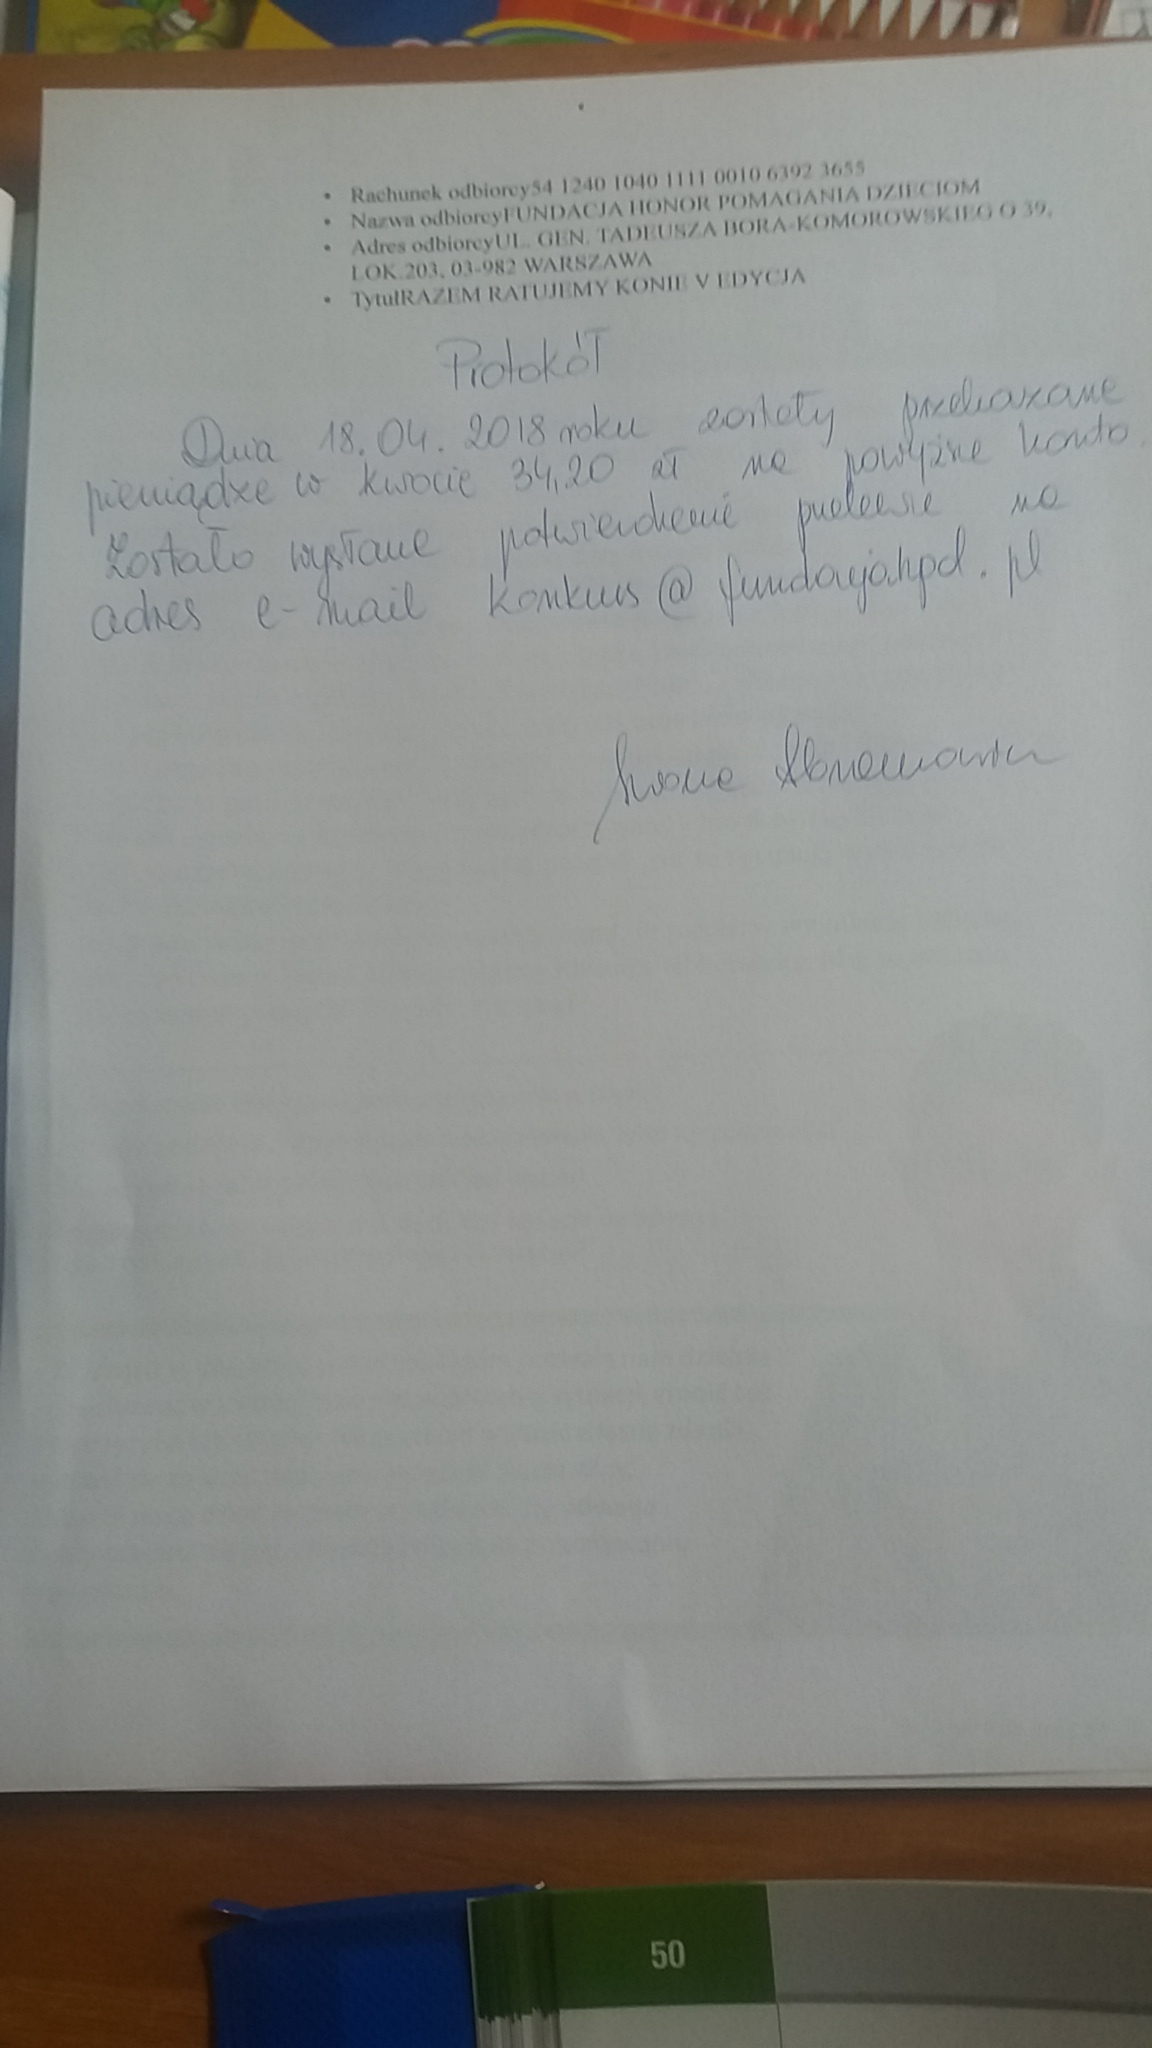 • Rachunek odbiorcy54 1240 1040 1111 0010 6392 3655
• Nazwa odbiorcyFUNDACJA HONOR POMAGANIA DZIECIOM
• Adres odbiorcyUL. GEN. TADEUSZA BORA-KOMOROWSKIEG O 39,
LOK.203, 03-982 WARSZAWA
• TytułRAZEM RATUJEMY KONIE V EDYCJA
Protokół
Dnia 18.04.2018 roku zostały przekazane
pieniądze w kwocie 34,20 zł na powyższe konto.
Zostało wysłane potwierdzenie przelewu na
adres e-mail konkurs@fundacjahpd.pl
Iwona
50